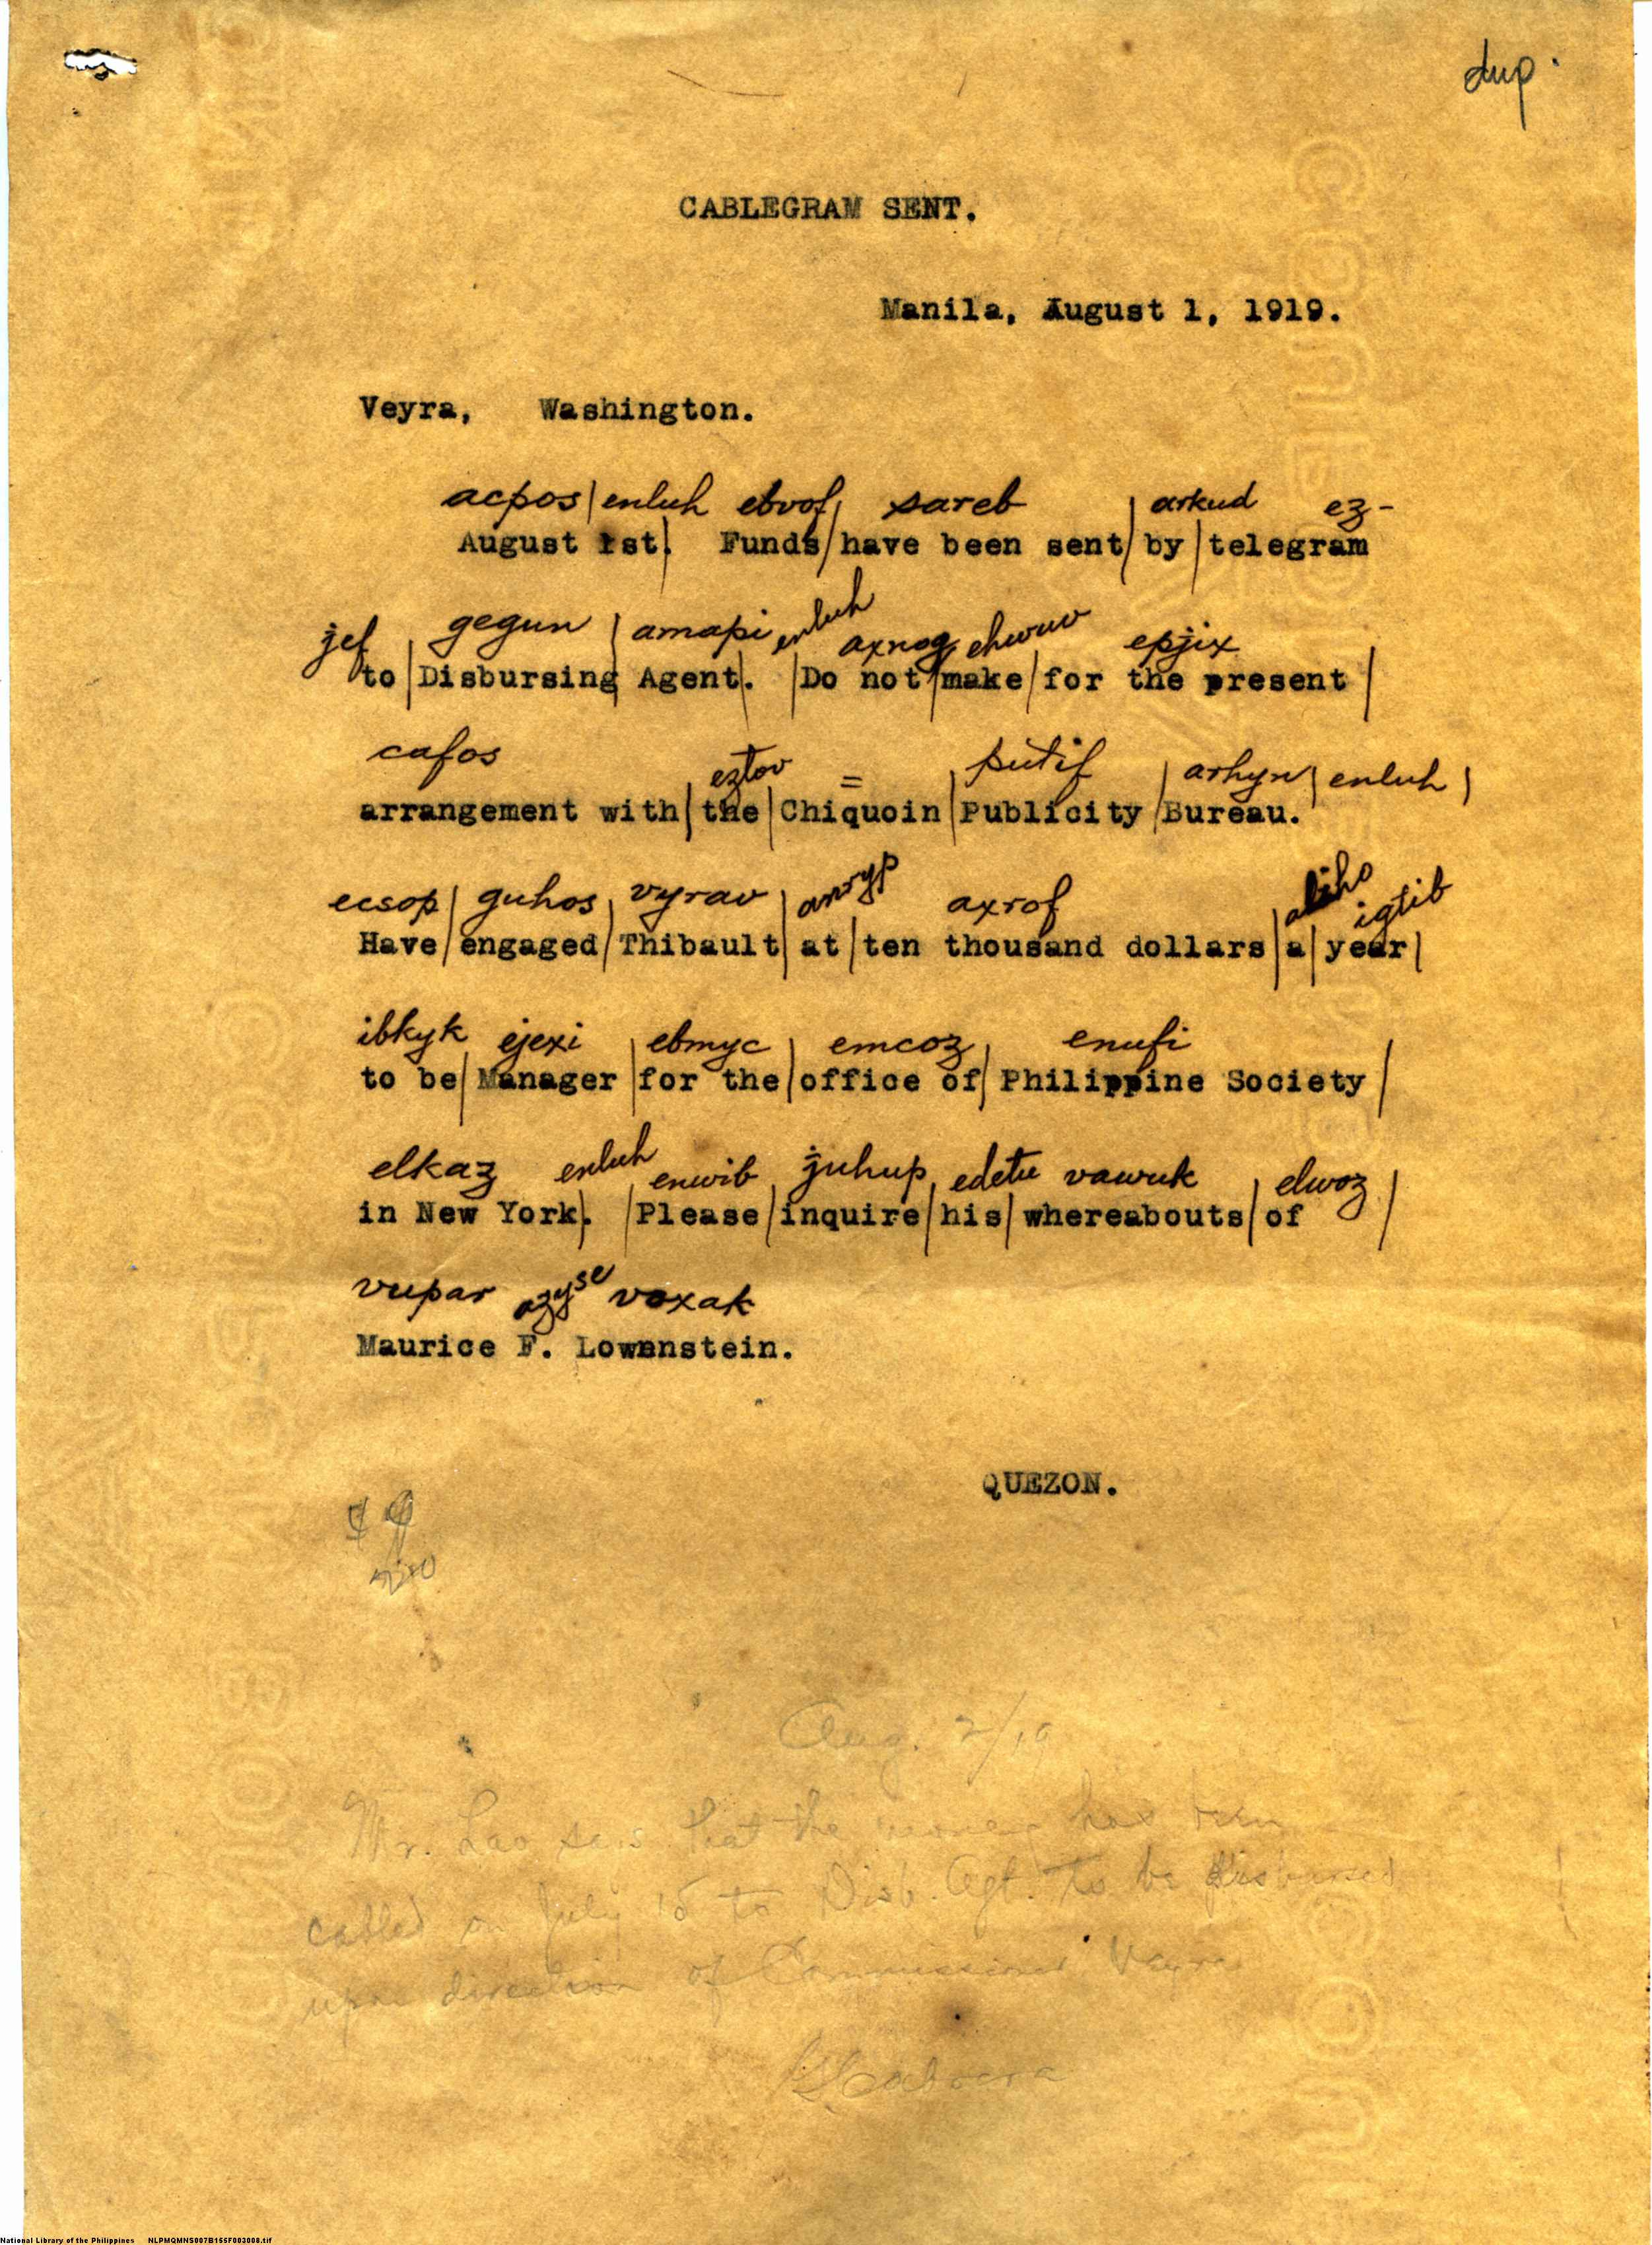 dup.
CABLEGRAM SENT.
Manila, August 1, 1919.
Veyra, Washington.
acpos/enluh ebvof/ sareb / arkud ez-
August 1st. Funds/have been sent/by/telegram
jef / gegun / amapi enluh axnog ehwuv epjix
to/Disbursing Agent. /Do not/make/for the present/
cafos eztov = putif / arhyn/enluh/
arrangement with/the/Chiquoin/Publicity/Bureau.
ecsop/ guhos/ vyrav / anryp axrof igtib
Have/engaged/Thibault/at/ten thousand dollars/a/year/
ibkyk ejexi / ebmyc / emcoz / enufi
to be/Manager/for the/office of/Philippine Society/
elkaz enluh enwib juhup edetu vawuk / elwoz /
in New York. /Please/inquire/his/whereabouts/of
vupar azyse voxak
Maurice F. Lowenstein.
QUEZON.
Aug. 2/19
Mr. Lao says that the money has been
cabled on July 15 to Disb. Agt. to be disbursed
upon direction of Commissioner Veyra
Cabrera
National Library of the Philippines NLPMQMNS007B155F003008.tif